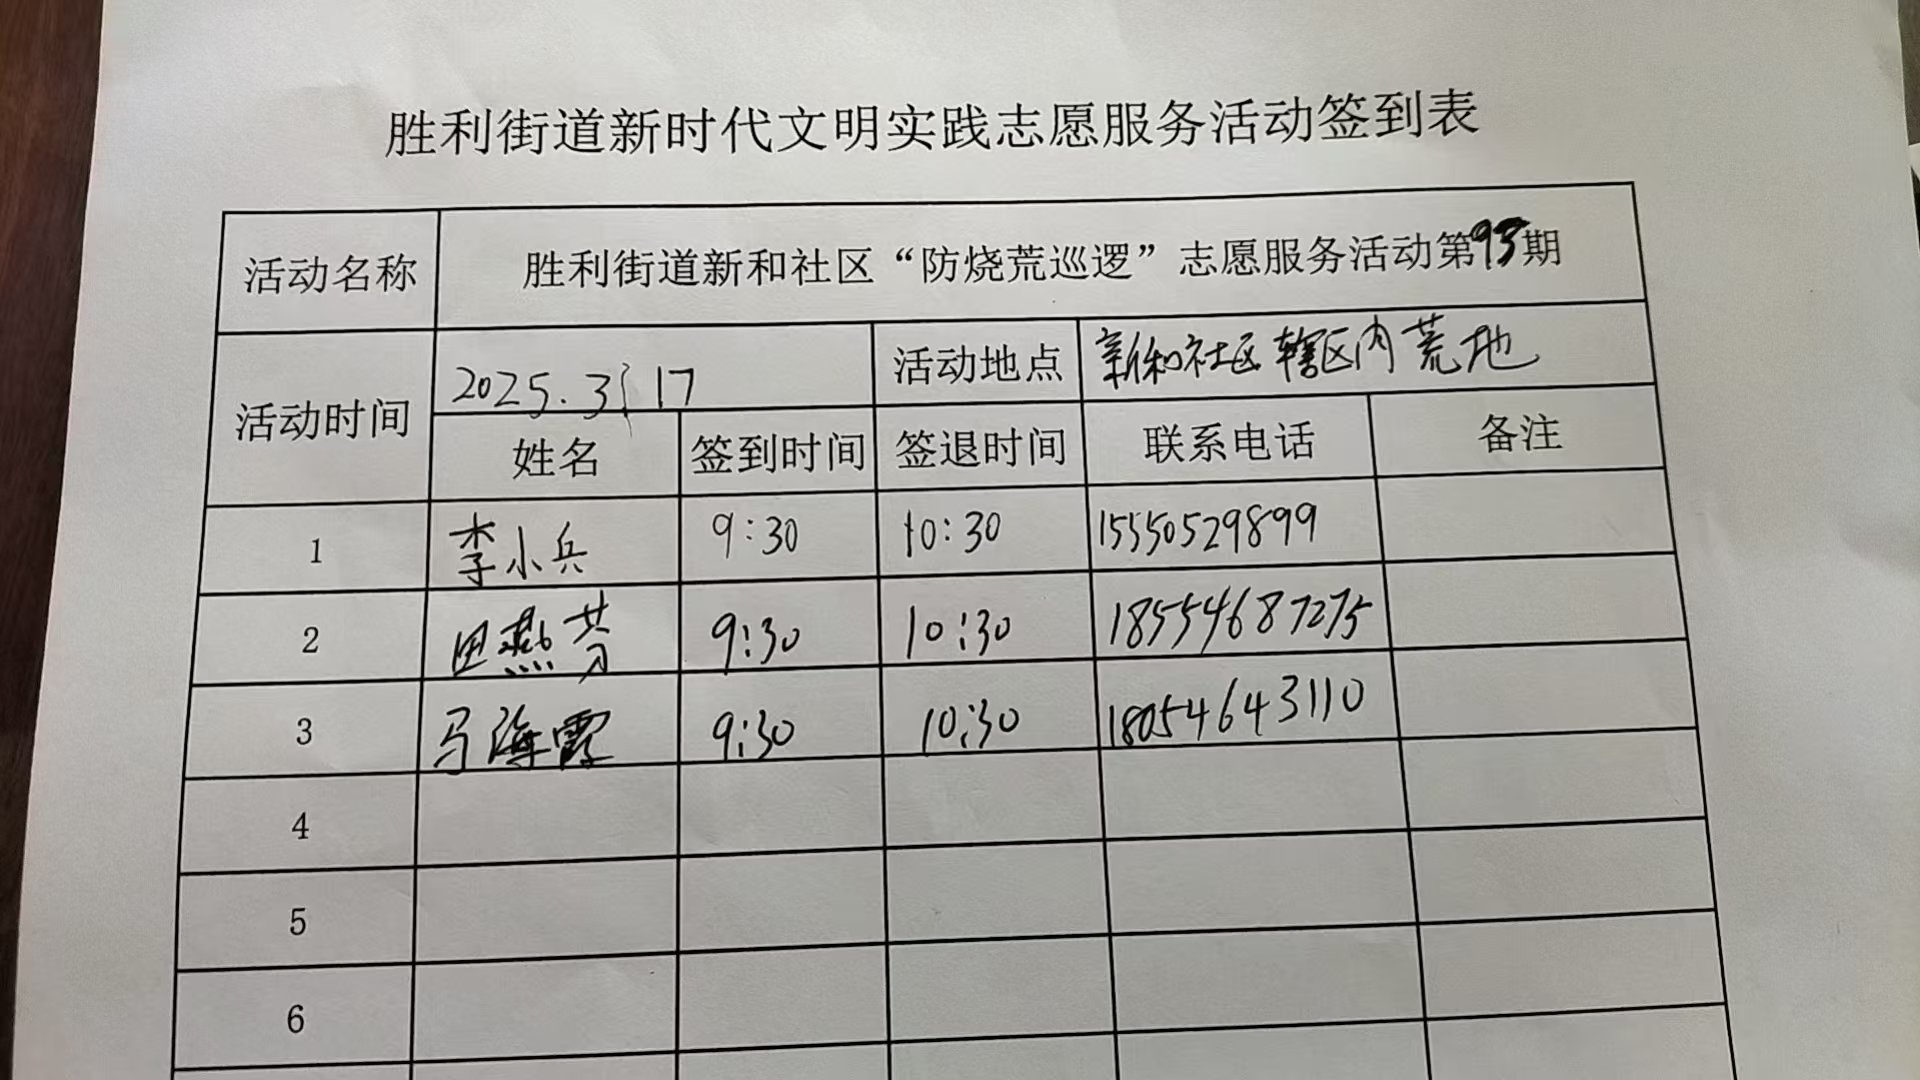 胜利街道新时代文明实践志愿服务活动签到表
活动名称 胜利街道新和社区“防烧荒巡逻”志愿服务活动第93期
活动时间 2025.3.17 活动地点 新和社区辖区内荒地
姓名 签到时间 签退时间 联系电话 备注
1 李小兵 9:30 10:30 15550529899
2 田燕芳 9:30 10:30 18554687275
3 马海霞 9:30 10:30 18054643110
4
5
6